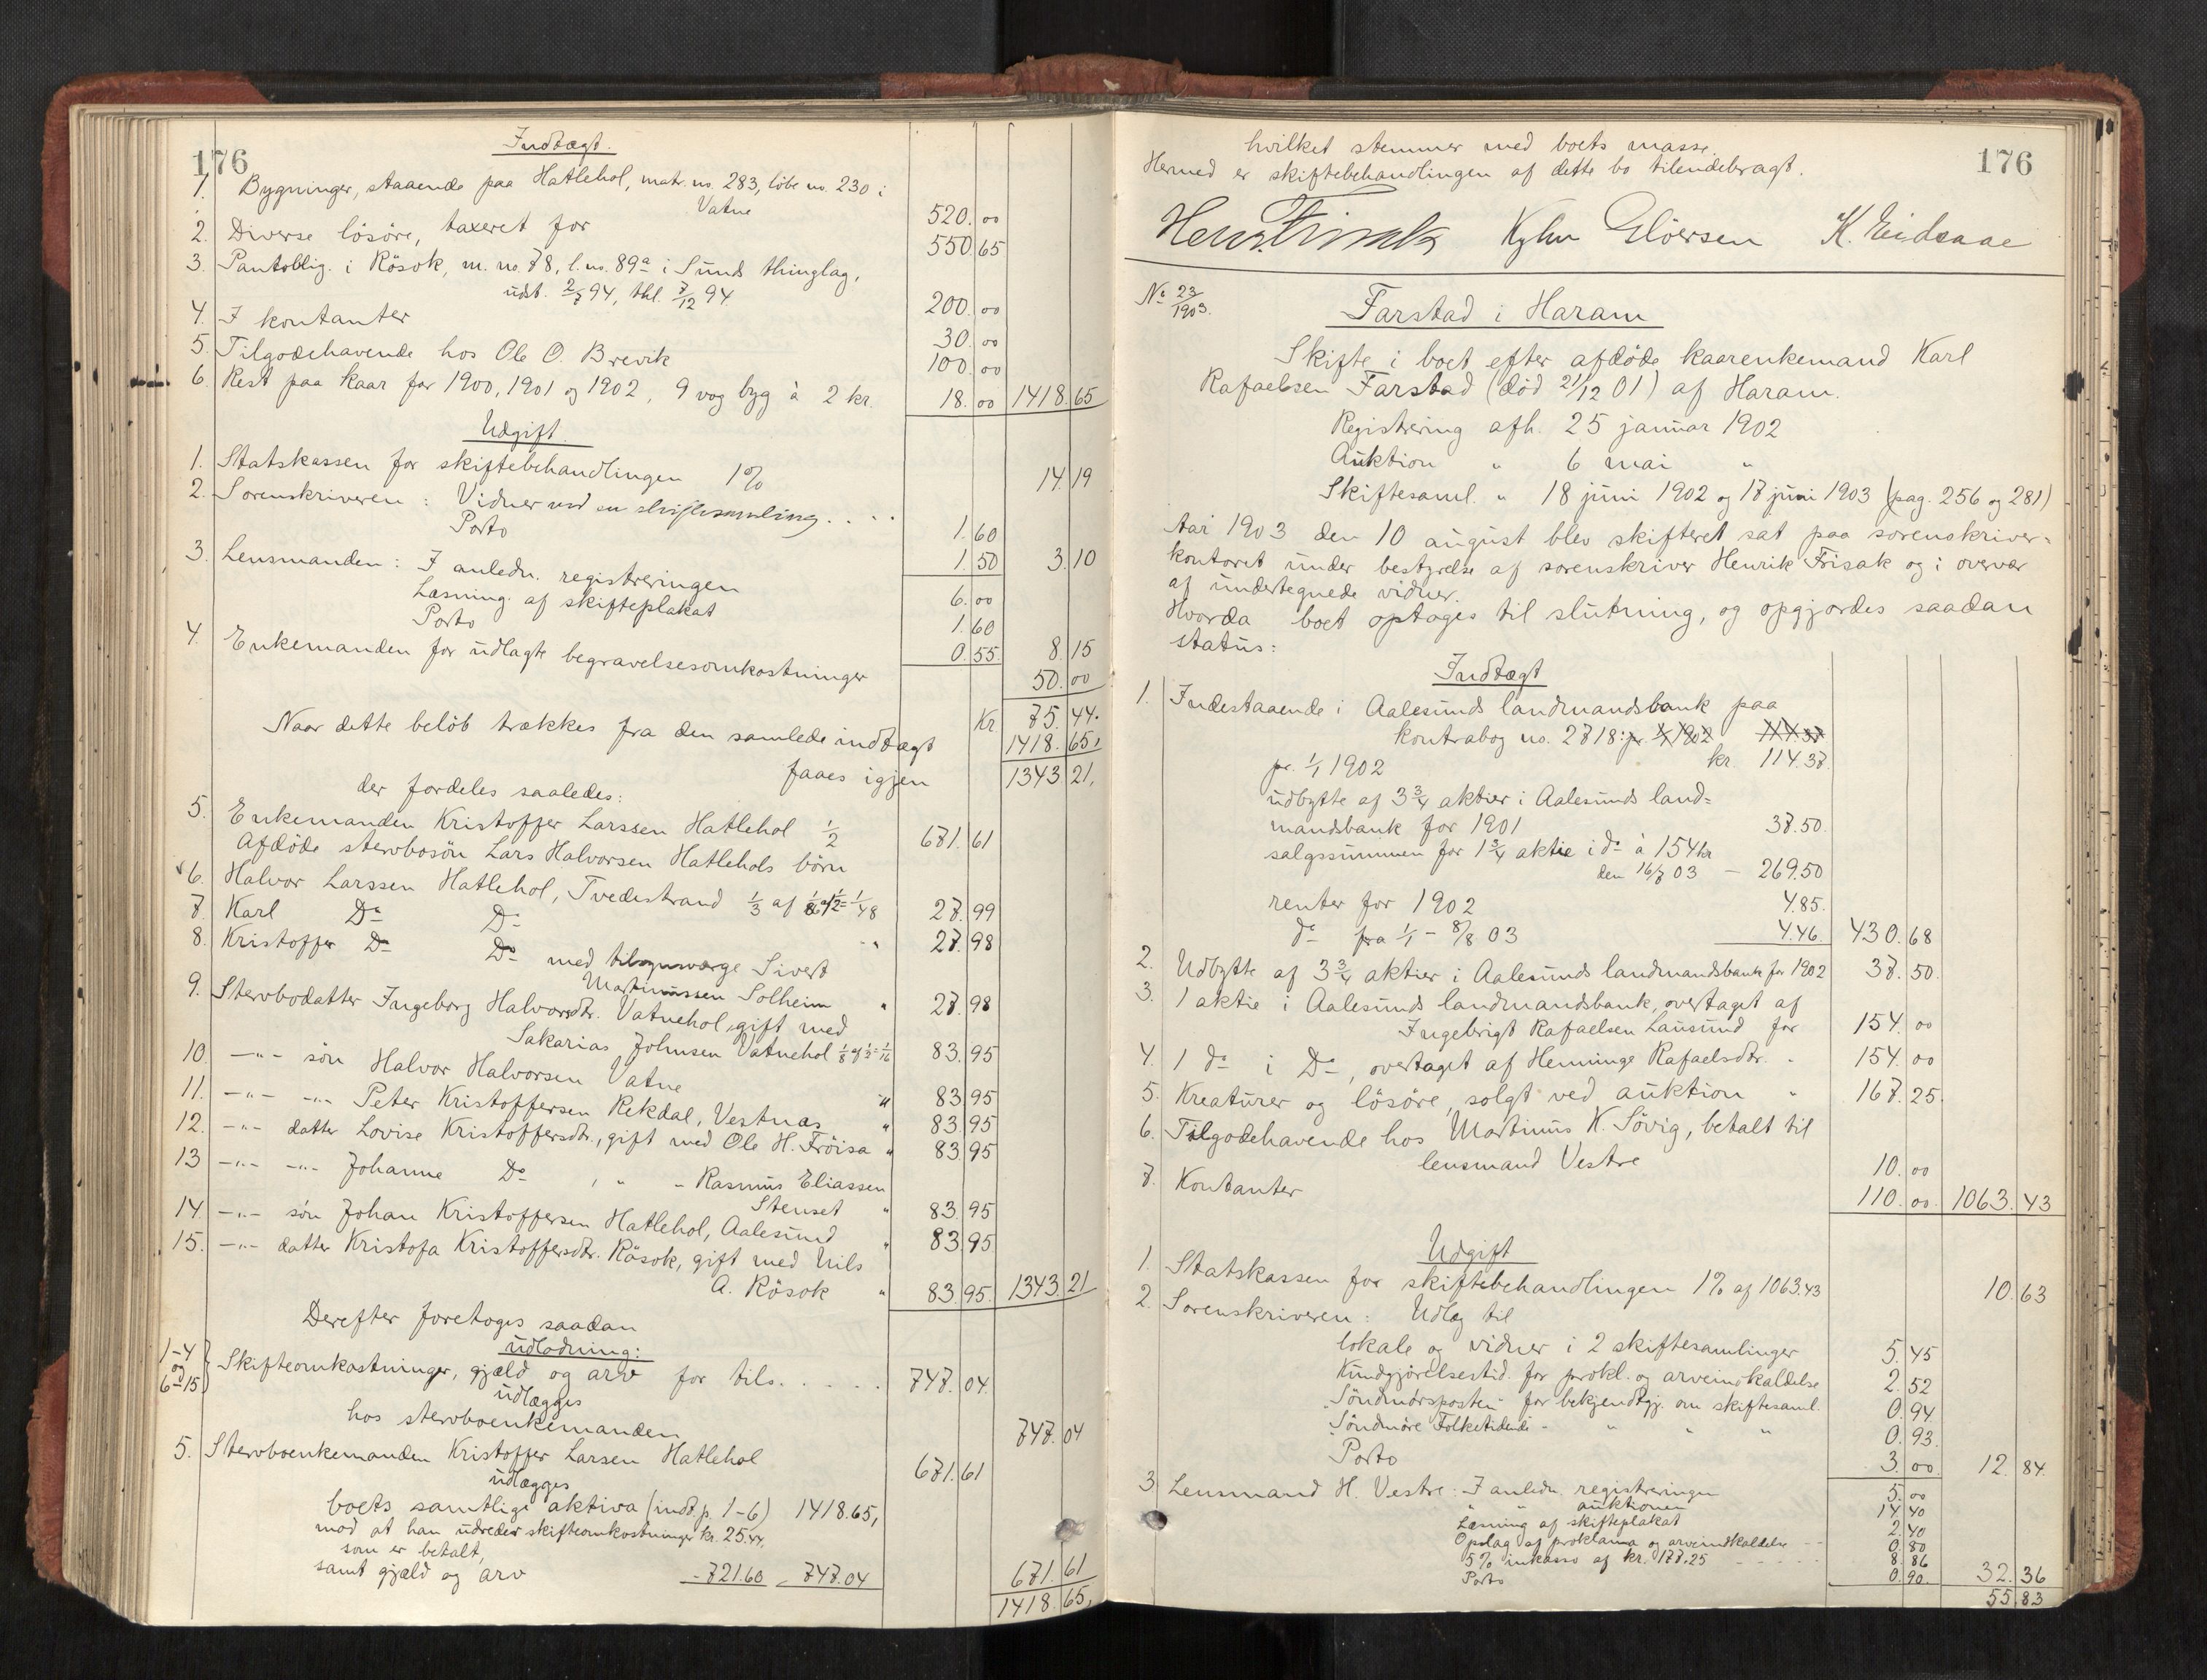 176
Indtægt.
1. Bygninger, staaende paa Hatlehol, matr. no. 283, löbe no. 230 i
Vatne 520. 00
2. Diverse lösöre, taxeret for 550 65
3. Pantoblig. i Rösok, m. no. 78, l. no. 89a i Sunds thinglag,
udst. 2/7 94, thl. 7/12 94 200. 00
4. I kontanter 30. 00
5. Tilgodehavende hos Ole O. Brevik 100. 00
6. Rest paa kaar for 1900, 1901 og 1902, 9 vog byg à 2 kr. 18. 00 1418. 65
Udgift.
1. Statskassen for skiftebehandlingen 1% 14. 19
2. Sorenskriveren: Vidner ved en skiftesamling . . . . 1. 60
Porto 1. 50 3. 10
3. Lensmanden: I anledn. registreringen 6. 00
Læsning af skifteplakat 1. 60
Porto 0. 55. 8. 15
4. Enkemanden for udlagte begravelsesomkostninger 50. 00
Kr 75. 44.
Naar dette belöb trækkes fra den samlede indtægt 1418. 65,
faaes igjen 1343. 21,
der fordeles saaledes:
5. Enkemanden Kristoffer Larssen Hatlehol 1/2 671. 61
Afdöde stervbosön Lars Halvorsen Hatlehols börn
6. Halvor Larssen Hatlehol, Tvedestrand 1/3 af 1/8 af 1/2 = 1/48 27. 99
7. Karl Do Do " 27. 98
8. Kristoffer Do Do med tilsynsværge Sivert
Martinussen Solheim " 27. 98
9. Stervbodatter Ingeborg Halvorsdtr. Vatnehol, gift med
Sakarias Johnsen Vatnehol 1/8 af 1/2 = 1/16 83. 95
10. —"— sön Halvor Halvorsen Vatne " 83. 95
11. —"— —"— Peter Kristoffersen Rekdal, Vestnæs " 83. 95
12. —"— datter Lovise Kristoffersdtr., gift med Ole H. Fröisa " 83. 95
13 —"— —"— Johanne Do , " - Rasmus Eliassen
Stenset " 83. 95
14. —"— sön Johan Kristoffersen Hatlehol, Aalesund " 83. 95
15. —"— datter Kristofa Kristoffersdtr. Rösok, gift med Nils
A. Rösok " 83. 95. 1343. 21
Derefter foretoges saadan
udlodning:
1-4 og 6-15} Skifteomkostninger, gjæld og arv for tils. . . . . . 747. 04.
udlægges
hos stervboenkemanden 747. 04
5. Stervboenkemanden Kristoffer Larsen Hatlehol 671. 61
udlægges
boets samtlige aktiva (indt. p. 1-6) 1418.65,
mod at han udreder skifteomkostninger kr. 25.44,
som er betalt,
samt gjæld og arv - 721.60 - 747.04 671. 61
1418. 65,
176
hvilket stemmer med boets masse.
Hermed er skiftebehandlingen af dette bo tilendebragt.
Henr. Frisak K. Eidsaae
No 23/1903.
Farstad i Haram
Skifte i boet efter afdöde kaarenkemand Karl
Rafaelsen Farstad (död 21/12 01) af Haram.
Registrering afh. 25 januar 1902
Auktion " 6 mai "
Skiftesaml. " 18 juni 1902 og 17 juni 1903 (pag. 256 og 281)
Aar 1903 den 10 august blev skifteret sat paa sorenskriver-
kontoret under bestyrelse af sorenskriver Henrik Frisak og i overvær
af undertegnede vidner.
Hvorda boet optoges til slutning, og opgjordes saadan
status:
Indtægt
1. Indestaaende i Aalesunds landmandsbank paa
kontrabog no. 2718: pr. 1/1 1902 114.37
pr. 1/1 1902 kr. 114.37.
udbytte af 3 3/4 aktier i Aalesunds land-
mandsbank for 1901 37.50.
salgssummen for 1 3/4 aktie i do à 154 kr
den 16/7 03 — 269.50
renter for 1902 4.85.
do fra 1/1 - 8/8 03 4.46. 430. 68
2. Udbytte af 3 3/4 aktier i Aalesunds landmandsbank for 1902 37. 50.
3. 1 aktie i Aalesunds landmandsbank, overtaget af
Ingebrigt Rafaelsen Lausund for 154. 00
4. 1 do i Do, overtaget af Henninge Rafaelsdtr. - 154. 00
5. Kreaturer og lösöre, solgt ved auktion " 167. 25.
6. Tilgodehavende hos Martinus K. Sövig, betalt til
lensmand Vestre 10. 00
7. Kontanter 110. 00. 1063. 43
Udgift
1. Statskassen for skiftebehandlingen 1% af 1063.43 10. 63
2. Sorenskriveren: Udlæg til
lokale og vidner i 2 skiftesamlinger 5. 45
Kundgjörelsestid. for prokl. og arveindkaldelse 2. 52
"Söndmørsposten" for bekjendtgj. om skiftesaml. 0. 94.
"Söndmöre Folketidende" - " " " 0. 93.
Porto 3. 00 12. 84.
3 Lensmand H. Vestre: I anledn. registreringen 5. 00
" " auktionen 14. 40
Læsning af skifteplakat 2. 40
Opslag af proklama og arveindkaldelse - - 0. 80
5% inkasso af kr. 177.25 - - - - - 8. 86
Porto 0. 90. 32. 36
55. 83